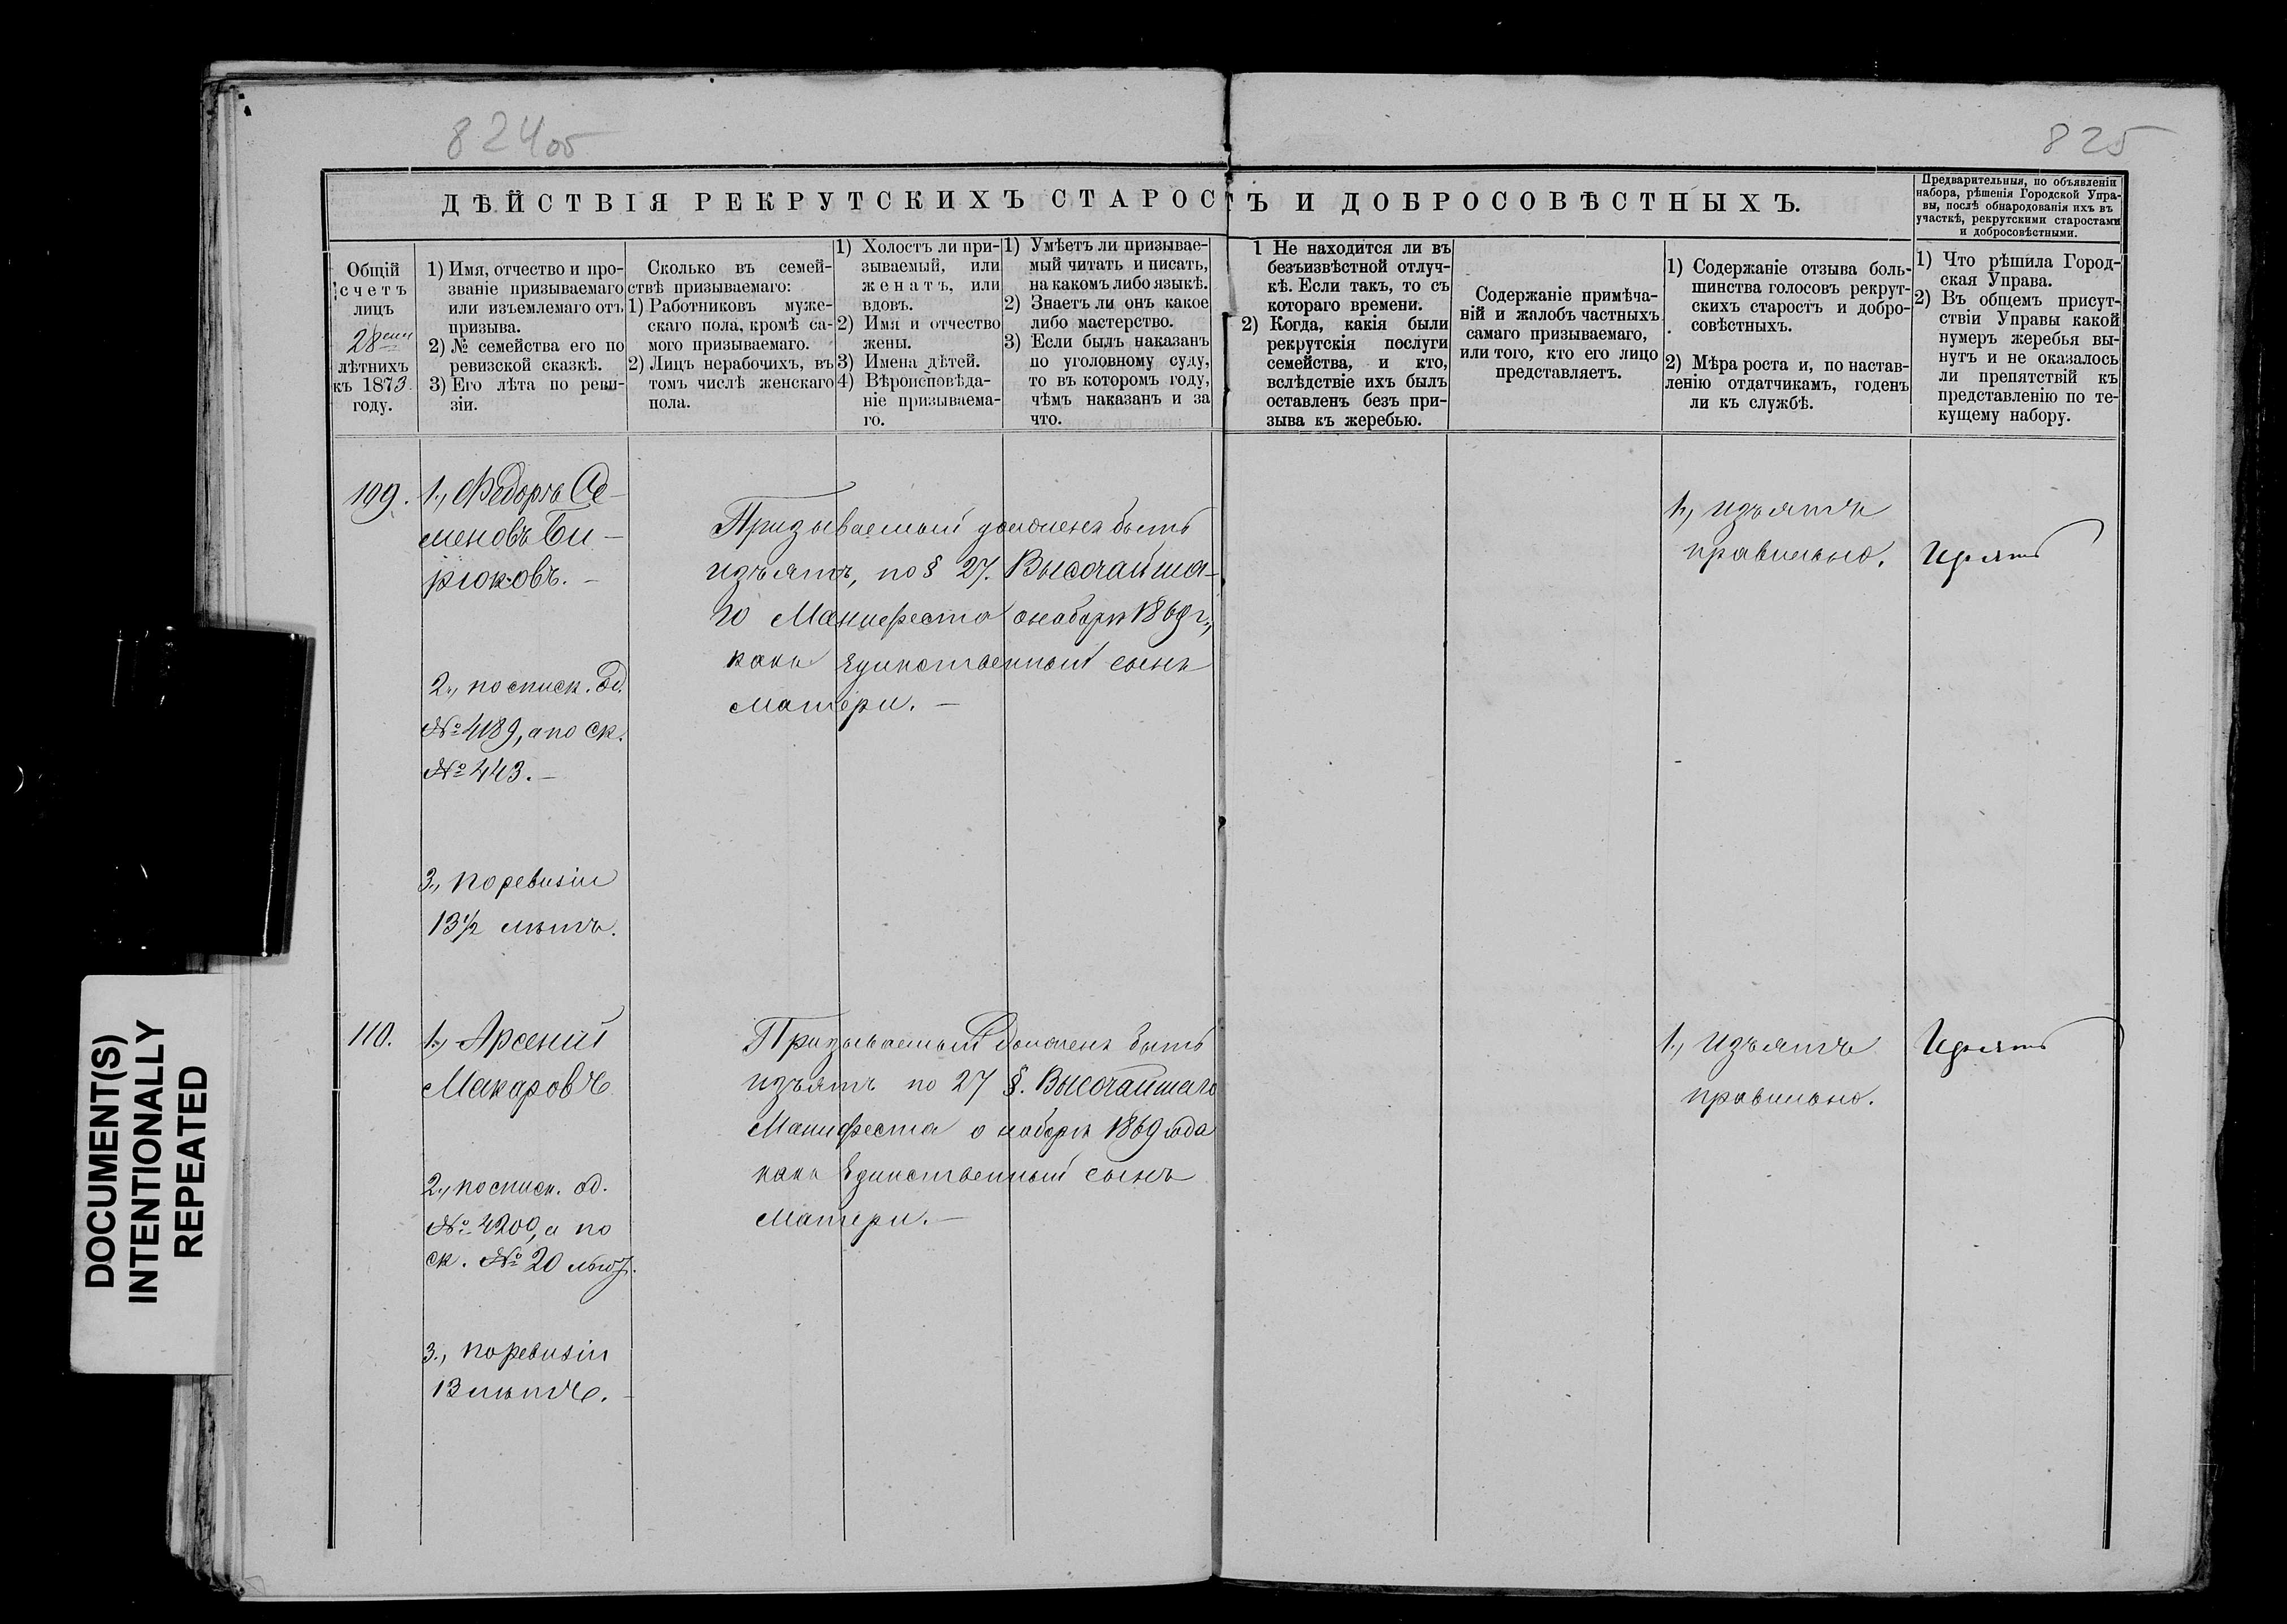 824об
825
ДѢЙСТВІЯ РЕКРУТСКИХЪ СТАРОСТЪ И ДОБРОСОВѢСТНЫХЪ.
Предварительныя, по объявленіи
набора, рѣшенія Городской Упра-
вы, послѣ обнародованія ихъ въ
участкѣ, рекрутскими старостами
и добросовѣстными.
Общій
счетъ
лицъ
28
лѣтнихъ
къ 1873
году.
1) Имя, отчество и про-
званіе призываемаго
или изъемлемаго отъ
призыва.
2) № семейства его по
ревизской сказкѣ.
3) Его лѣта по реви-
зіи.
Сколько въ семей-
ствѣ призываемаго:
1) Работниковъ муже-
скаго пола, кромѣ са-
мого призываемаго.
2) Лицъ нерабочихъ, въ
томъ числѣ женскаго
пола.
1) Холостъ ли при-
зываемый, или
женатъ, или
вдовъ.
2) Имя и отчество
жены.
3) Имена дѣтей.
4) Вѣроисповѣда-
ніе призываема-
го.
1) Умѣетъ ли призывае-
мый читать и писать,
на какомъ либо языкѣ.
2) Знаетъ ли онъ какое
либо мастерство.
3) Если былъ наказанъ
по уголовному суду,
то въ которомъ году,
чѣмъ наказанъ и за
что.
1 Не находится ли въ
безъизвѣстной отлуч-
кѣ. Если такъ, то съ
котораго времени.
2) Когда, какія были
рекрутскія послуги
семейства, и кто,
вслѣдствіе ихъ былъ
оставленъ безъ при-
зыва къ жеребью.
Содержаніе примѣча-
ній и жалобъ частныхъ
самаго призываемаго,
или того, кто его лицо
представляетъ.
1) Содержаніе отзыва боль-
шинства голосовъ рекрут-
скихъ старостъ и добро-
совѣстныхъ.
2) Мѣра роста и, по настав-
ленію отдатчикамъ, годенъ
ли къ службѣ.
1) Что рѣшила Город-
ская Управа.
2) Въ общемъ присут-
ствіи Управы какой
нумеръ жеребья вы-
нутъ и не оказалось
ли препятствій къ
представленію по те-
кущему набору.
109.
1., Федоръ Се-
меновъ Би-
рюковъ. –
2., по списк. Об.
№ 4189, а по ск.
№ 443. –
3., по ревизіи
13½ лѣтъ.
Призываемый долженъ быть
изъятъ, по § 27. Высочайша-
го Манифеста о наборѣ 1869 г.,
какъ единственный сынъ
матери. –
1., изъятъ
правильно.
Изъять
110.
1., Арсеній
Макаровъ
2., по списк. об.
№ 4200, а по
ск. № 20
3., по ревизіи
13 лѣтъ. –
Призываемый долженъ быть
изъятъ по 27 §. Высочайшаго
Манифеста о наборѣ 1869 года
какъ единственный сынъ
матери. –
1., изъятъ
правильно.
Изъять
DOCUMENT(S)
INTENTIONALLY
REPEATED